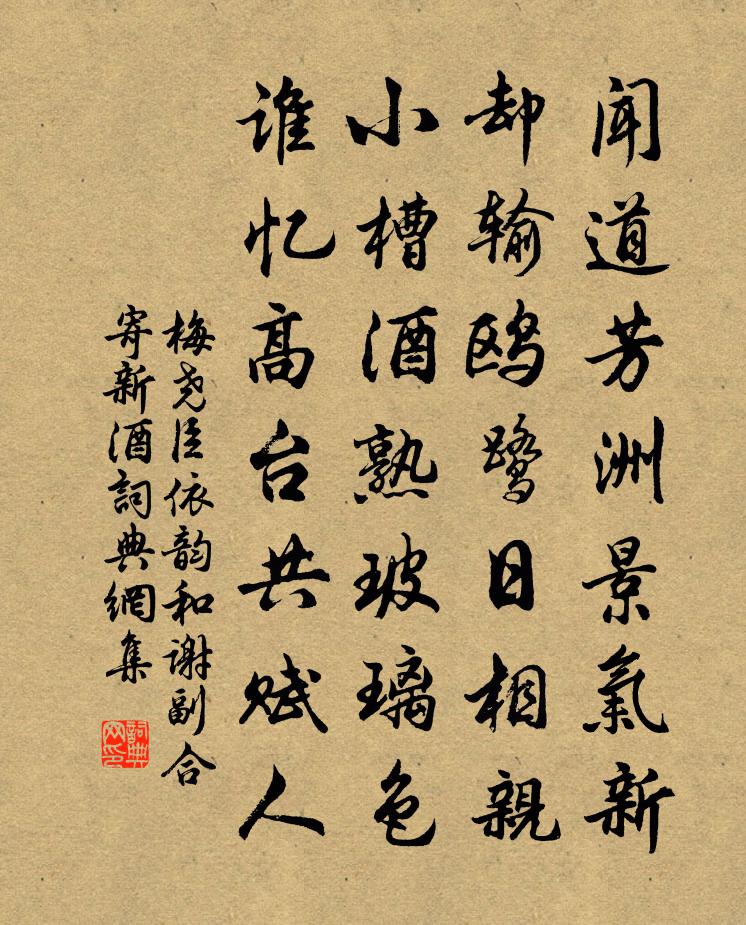 闻道芳洲景氣新
却输鸥鹭日相親
小槽酒熟玻璃色
谁忆高台共赋人
梅尧臣依韵和谢副合
寄新酒詞典網集
詞典网印